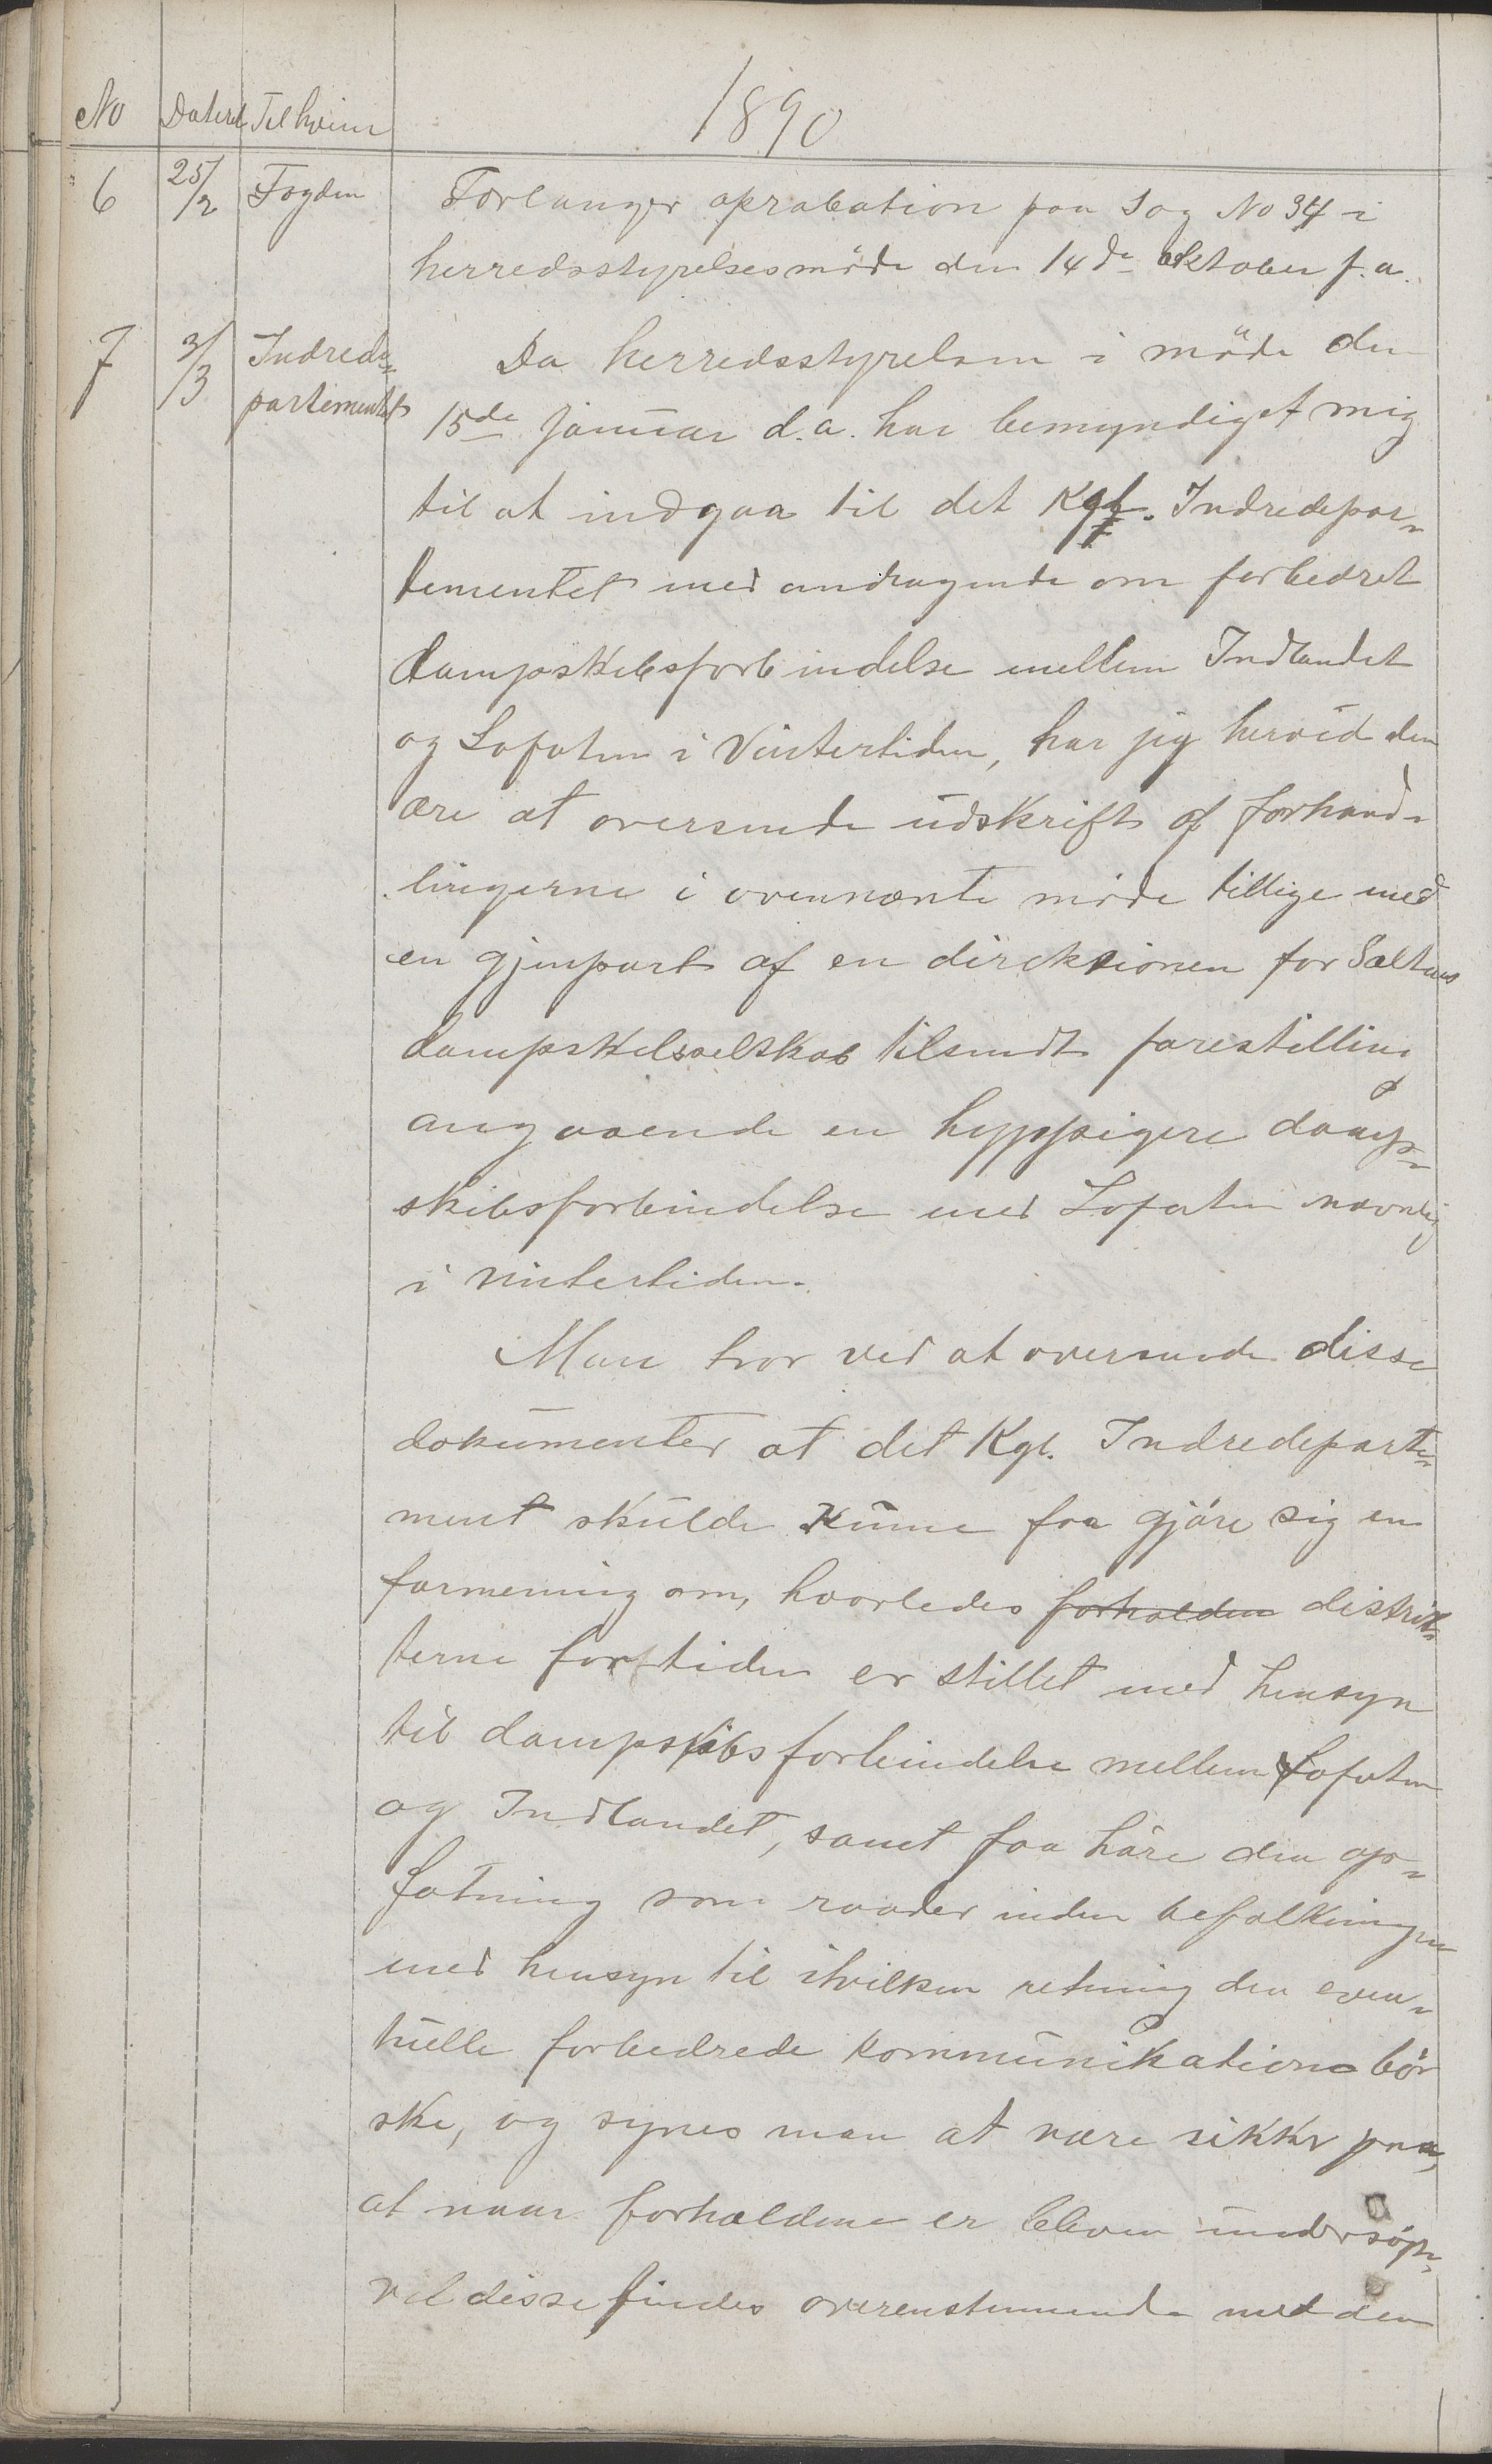 1890
No Dateret Til hvem
6 25/2 Fogden Forlanger aprobation paa Sag No 34 i
herredsstyrelsesmöde den 14de oktober f.a.
7 3/3 Indrede- Da herredsstyrelsen i möde den
partementet 15de januar d.a. har bemyndiget mig
til at indgaa til det Kgl. Indredepar-
tementet med andragende om forbedret
dampskibsforbindelse mellem Indlandet
og Lofoten i Vintertiden, har jeg herved den
ære at oversende udskrift af forhand-
lingerne i ovennævnte möde tillige med
en gjenpart af en direktionen for Saltens
dampskibsselskab tilsendt forestilling
angaaende en hyppigere damp-
skibsforbindelse med Lofoten navnlig
i vintertiden.
Man tror ved at oversende disse
dokumenter at det Kgl. Indredeparte-
ment skulde kunne faa gjöre sig en
formening om, hvorledes forholdene distrik-
terne for tiden er stillet med hensyn
til dampskibsforbindelse mellem Lofoten
og Indlandet, samt faa höre den op-
fatning som raader inden befolkningen
med hensyn til ihvilken retning den even-
tuelle forbedrede kommunikation bör
ske, og synes man at være sikker paa,
at naar forholdene er bleven undersögt,
vil disse findes overensstemmende med den